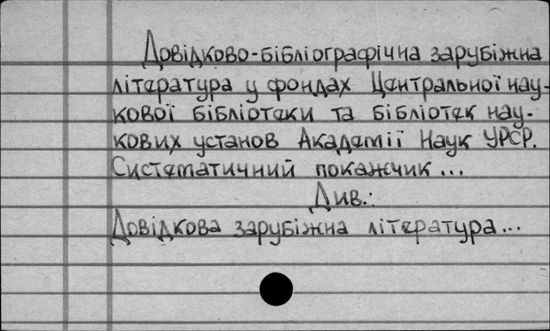 Довідково-бібліографічна зарубіжна
література у фондах Центральної нау-
кової бібліотеки та бібліотек нау-
кових установ Академії Наук УРСР.
Систематичний покажчик...
Див.:
Довідкова зарубіжна література...